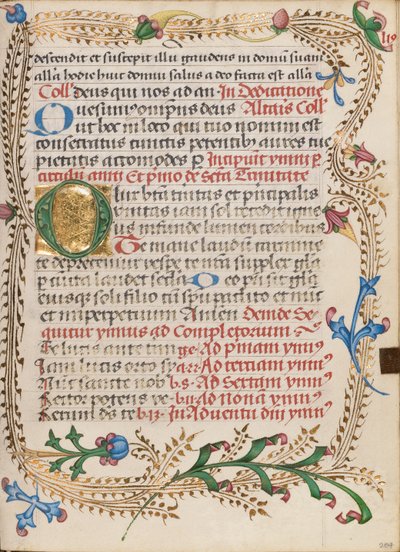 descendit et suscepit illu gaudens in domu suam
alla hodie huic domui salus a deo facta est alla
Coll Deus qui nos ad an In Dedicatione
Quesumus omnipotens deus Altaris Coll
ut hoc in loco qui tuo nomini est
consecratus cunctis petentibus aures tue
pietatis accomodes p Incipiunt ymni p
circulu anni Et primo de sancta Trinitate
O lux beata trinitas et principalis
unitas iam sol recedit igne
us infunde lumen cordibus
Te mane laudum carmine
et deprecemur vespe te nostra supplex gla
p cuncta laudet secula Deo patri sit gla
eiusque soli filio cum spu paclito et nunc
et in perpetuum Amen Deinde Se
quitur ymnus ad Completorium
Te lucis ante ter ge Ad primam ymn
Iam lucis orto sy Ad terciam ymn
Nunc sancte nob b.s Ad Sextam ymn
Rector potens ve Ad nonam ymn
Rerum de te In Adventu dni ymn